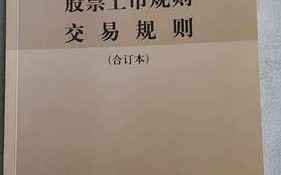 股票上市规则
交易规则
(合订本)